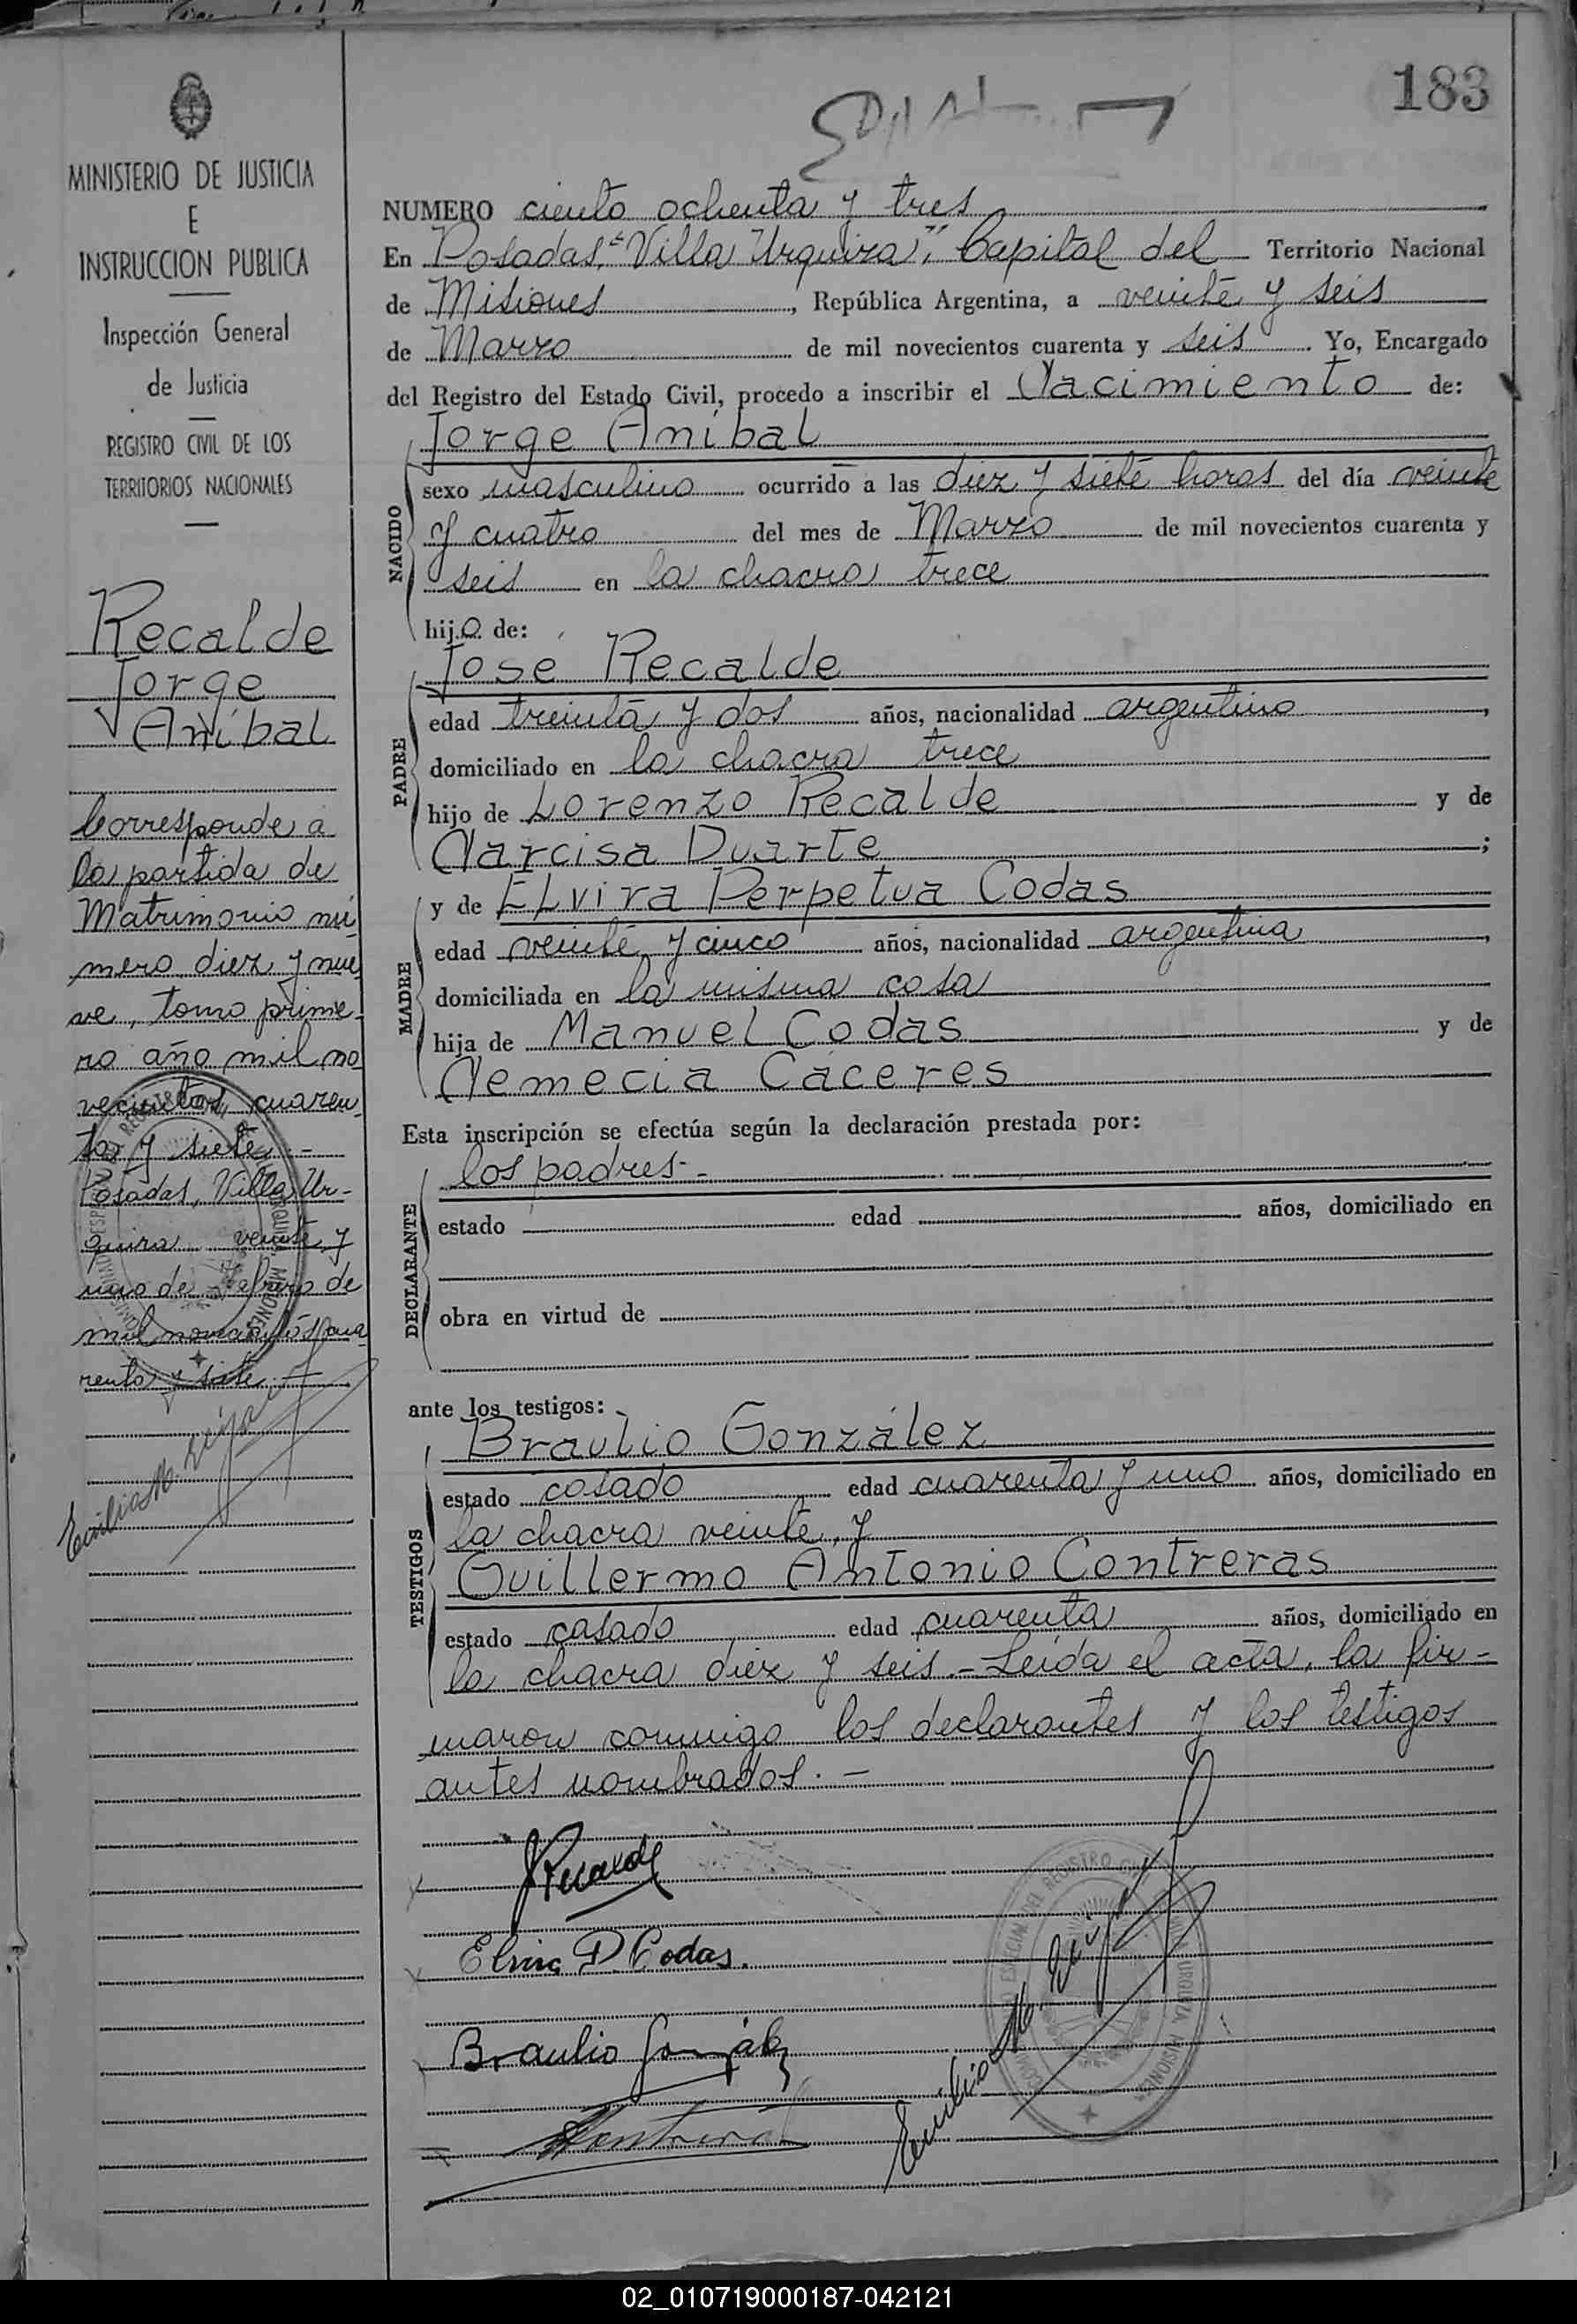 183
MINISTERIO DE JUSTICIA
E
INSTRUCCION PUBLICA
Inspección General
de Justicia
REGISTRO CIVIL DE LOS
TERRITORIOS NACIONALES
Recalde
Jorge
Aníbal
Corresponde a
la partida de
Matrimonio nú-
mero diez y nue
ve, tomo prime-
ro año mil no
vecientos cuaren-
ta y siete.-
Posadas, Villa Ur-
quiza veinte y
uno de febrero de
mil novecientos cua-
renta y siete.-
Emilio M.
NUMERO ciento ochenta y tres
En Posadas, "Villa Urquiza", Capital del Territorio Nacional
de Misiones, República Argentina, a veinte y seis
de Marzo de mil novecientos cuarenta y seis. Yo, Encargado
del Registro del Estado Civil, procedo a inscribir el Nacimiento de:
NACIDO
Jorge Aníbal
sexo masculino ocurrido a las diez y siete horas del día veinte
y cuatro del mes de Marzo de mil novecientos cuarenta y
seis en la chacra trece
hijo de:
PADRE
José Recalde
edad treinta y dos años, nacionalidad argentino,
domiciliado en la chacra trece
hijo de Lorenzo Recalde y de
Narcisa Duarte;
MADRE
y de Elvira Perpetua Codas
edad veinte y cinco años, nacionalidad argentina,
domiciliada en la misma casa
hija de Manuel Codas y de
Nemecia Cáceres
Esta inscripción se efectúa según la declaración prestada por:
DECLARANTE
los padres.-
estado edad años, domiciliado en
obra en virtud de
ante los testigos:
TESTIGOS
Braulio González
estado casado edad cuarenta y uno años, domiciliado en
la chacra veinte, y
Guillermo Antonio Contreras
estado casado edad cuarenta años, domiciliado en
la chacra diez y seis.- Leída el acta, la fir-
maron conmigo los declarantes y los testigos
antes nombrados.-
JRecalde
Elvira P. Codas.
Braulio González
Contreras
Emilio M.
02_010719000187-042121